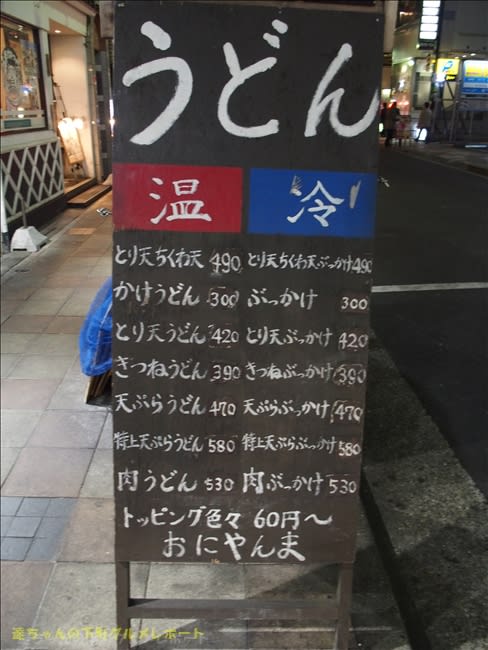 うどん
温 冷
とり天ちくわ天 490 とり天ちくわ天ぶっかけ 490
かけうどん 300 ぶっかけ 300
とり天うどん 420 とり天ぶっかけ 420
きつねうどん 390 きつねぶっかけ 390
天ぷらうどん 470 天ぷらぶっかけ 470
特上天ぷらうどん 580 特上天ぷらぶっかけ 580
肉うどん 530 肉ぶっかけ 530
トッピング色々 60円〜
おにやんま